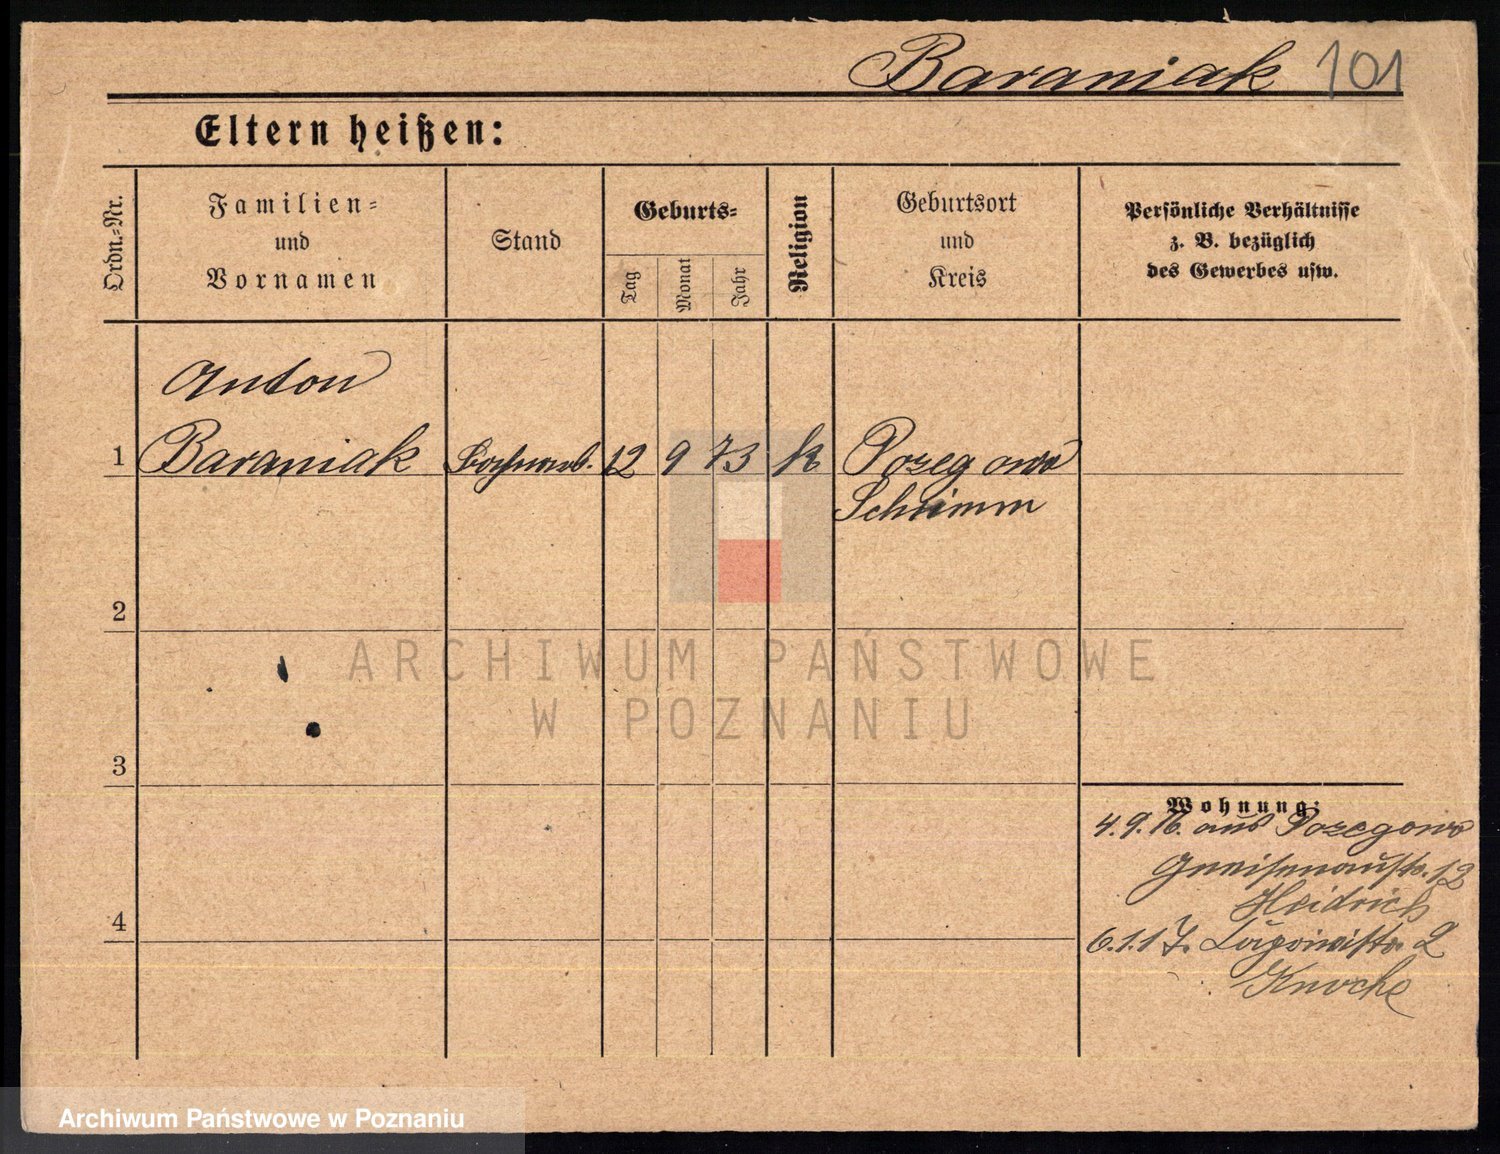 Baraniak 101
Eltern heißen:
Ordn.-Nr.
Familien-
und
Vornamen
Stand
Geburts-
Tag
Monat
Jahr
Religion
Geburtsort
und
Kreis
Persönliche Verhältnisse
z. B. bezüglich
des Gewerbes usw.
Anton
1 Baraniak 12 9 73 k Pozegowo
Schrimm
2
3
4
Wohnung:
4.9.16. aus Pozegowo
Gneisenaustr. 12
Heidrich
6.1.17. 2
Knoche
ARCHIWUM PAŃSTWOWE
W POZNANIU
Archiwum Państwowe w Poznaniu